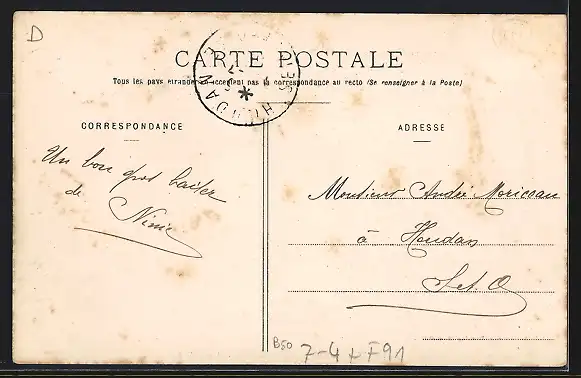 D
CARTE POSTALE
Tous les pays étrangers n'acceptent pas la correspondance au recto (Se renseigner à la Poste)
HOUDAN
CORRESPONDANCE
Un bon gros baiser
de
Ninie
ADRESSE
Monsieur André Moriceau
à Houdan
S et. O
B50
7-4 x F91